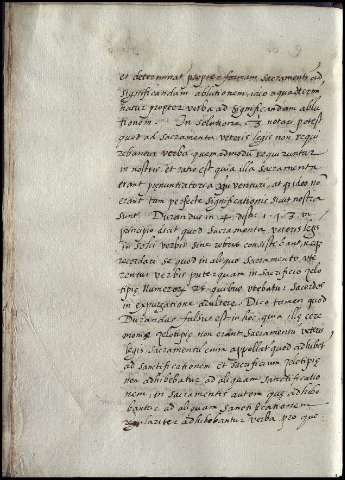 et determinat propter formam sacramenti ad
significandam ablutionem, ideo aqua determi
natur propter verba ad significandam ablu
tionem. In solutione 3 notari potest
quod ad sacramenta veteris legis non requi
rebantur verba quemadmodũ requiruntur
in nostris et ratio est quia illa sacramenta
erant pronuntiatoria Xpi venturi, et ideo nõ
erant tam perfecte significationis sicut nostra
sunt. Durandus in 4. dist. 1. q. 3. in
principio dicit quod sacramenta veteris legis
in solis verbis sine rebus consistebant, nec
recordari se quod in aliquo sacramento ute
rentur verbis preterquam in sacrificio zelo
tipię Numeror. quibus utebatur sacerdos
in expurgatione adultere. Dico tamen quod
Durandus falsus est in hoc, quia illę cere
monię zelotipię non erant sacramentũ veteris
legis, sacramentũ enim appellat quod adhibet
ad sanctificationem et sacrificium zelotipię
non adhibebatur ad aliquam sanctificatio
nem, in sacramentis autem quę adhibe
bantur ad aliquam sanctificationem
regulariter adhibebantur verba pro que